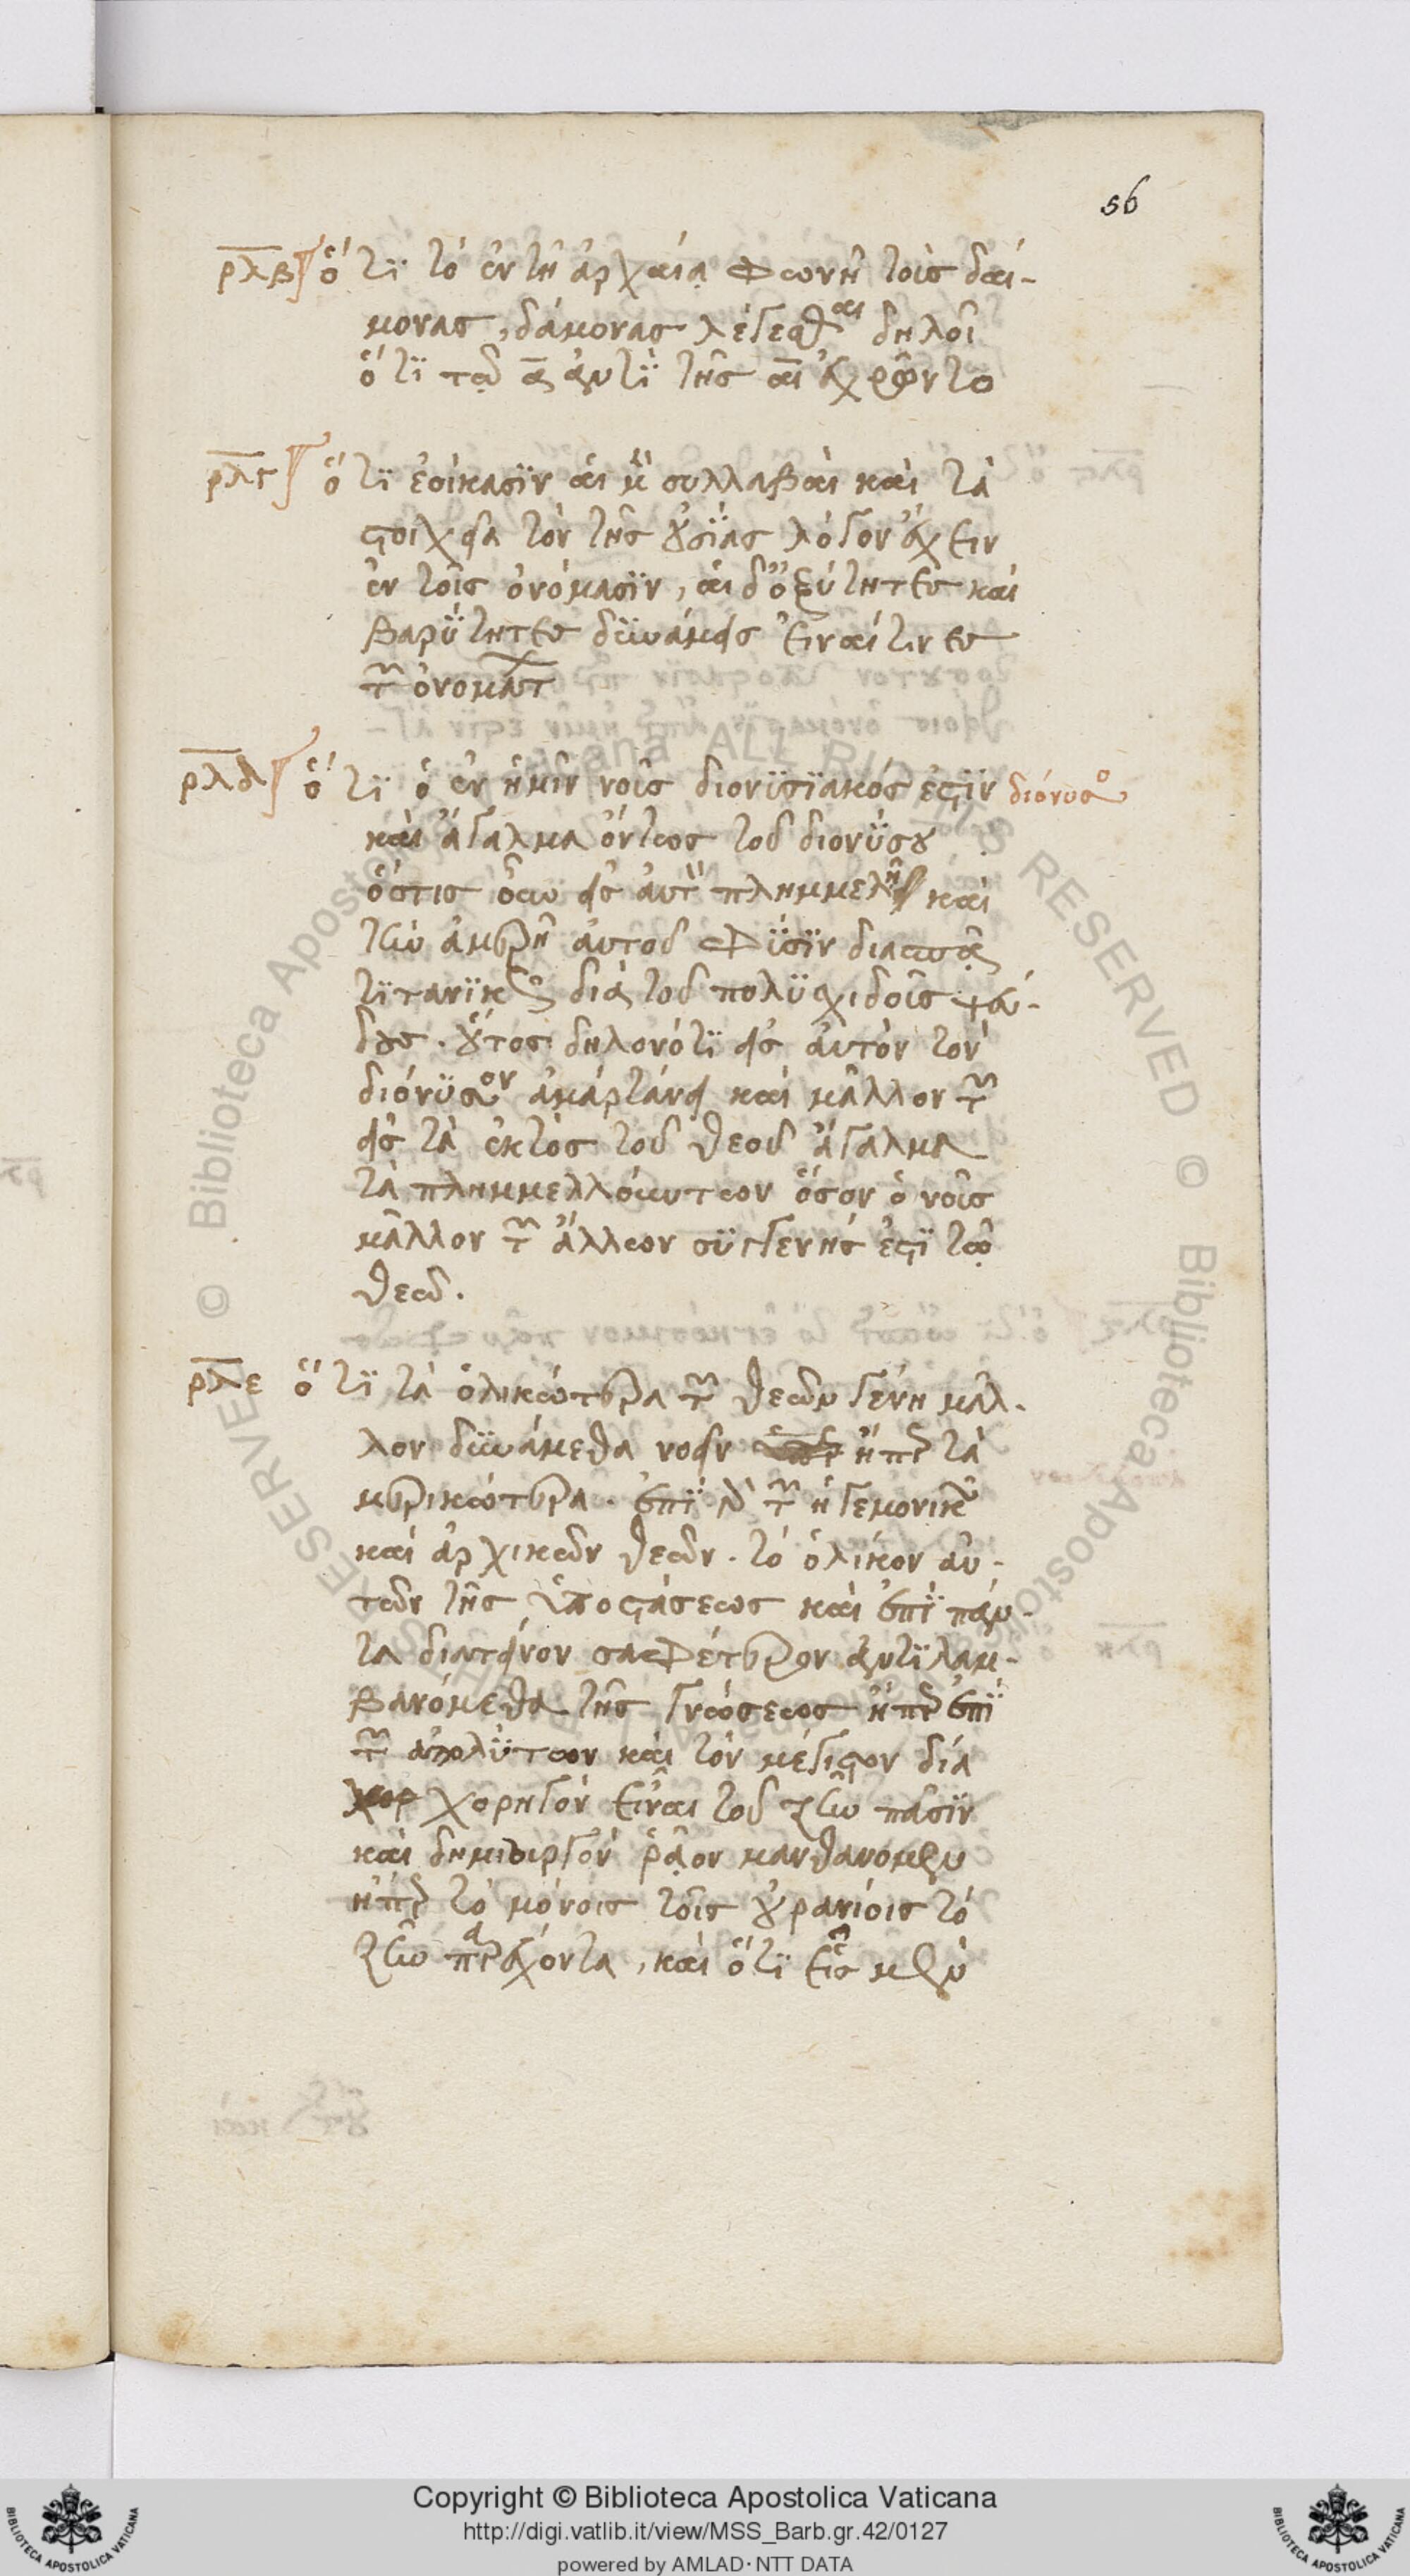 56
ρλβ ὅτι τὸ ἐν τῇ ἀρχαίᾳ φωνῇ τοὺς δαί-
μονας, δάμονας λέγεσθαι δηλοῖ
ὅτι τῷ ᾱ ἀντὶ τῆς αι ἐχρῶντο
ρλγ ὅτι ἐοίκασιν αἱ μὲν συλλαβαὶ καὶ τὰ
στοιχεῖα τὸν τῆς οὐσίας λόγον ἔχειν
ἐν τοῖς ὀνόμασιν, αἱ δ' ὀξύτητες καὶ
βαρύτητες δυνάμεις εἶναί τινες
τῶν ὀνομάτων
ρλδ ὅτι ὁ ἐν ἡμῖν νοῦς διονυσιακός ἐστιν διόνυσος
καὶ ἄγαλμα ὄντως τοῦ διονύσου
ὅστις οὖν εἰς αὐτὸν πλημμελῇ καὶ
τὴν ἀμερῆ αὐτοῦ φύσιν διασπᾷ
τιτανικῶς διὰ τοῦ πολυσχιδοῦς ψεύ-
δους. οὗτος δηλονότι εἰς αὐτὸν τὸν
διόνυσον ἁμαρτάνει καὶ μᾶλλον τῶν
εἰς τὰ ἐκτὸς τοῦ θεοῦ ἄγαλμα
τὰ πλημμελλόυντων ὅσον ὁ νοῦς
μᾶλλον τῶν ἄλλων συγγενής ἐστι τῷ
θεῷ.
ρλε ὅτι τὰ ὁλικώτερα τῶν θεῶν γένη μᾶλ-
λον δυνάμεθα νοεῖν ἤπερ τὰ
μερικώτερα. ἐπὶ δὲ τῶν ἡγεμονικῶν
καὶ ἀρχικῶν θεῶν. τὸ ὁλικὸν αὐ-
τῶν τῆς ὑποστάσεως καὶ ἐπὶ πάν-
τα διατεῖνον σαφέτερον ἀντιλαμ-
βανόμεθα τῆς γνώσεως ἤπερ ἐπὶ
τῶν ἀπολύτων καὶ τὸν μέγιστον δία
χορηγὸν εἶναι τοῦ ζῆν πᾶσιν
καὶ δημιουργὸν ῥᾷον μανθάνομεν
ἤπερ τὸ μόνοις τοῖς οὐρανίοις τὸ
ζῆν παρέχοντα, καὶ ὅτι εἷς μὲν